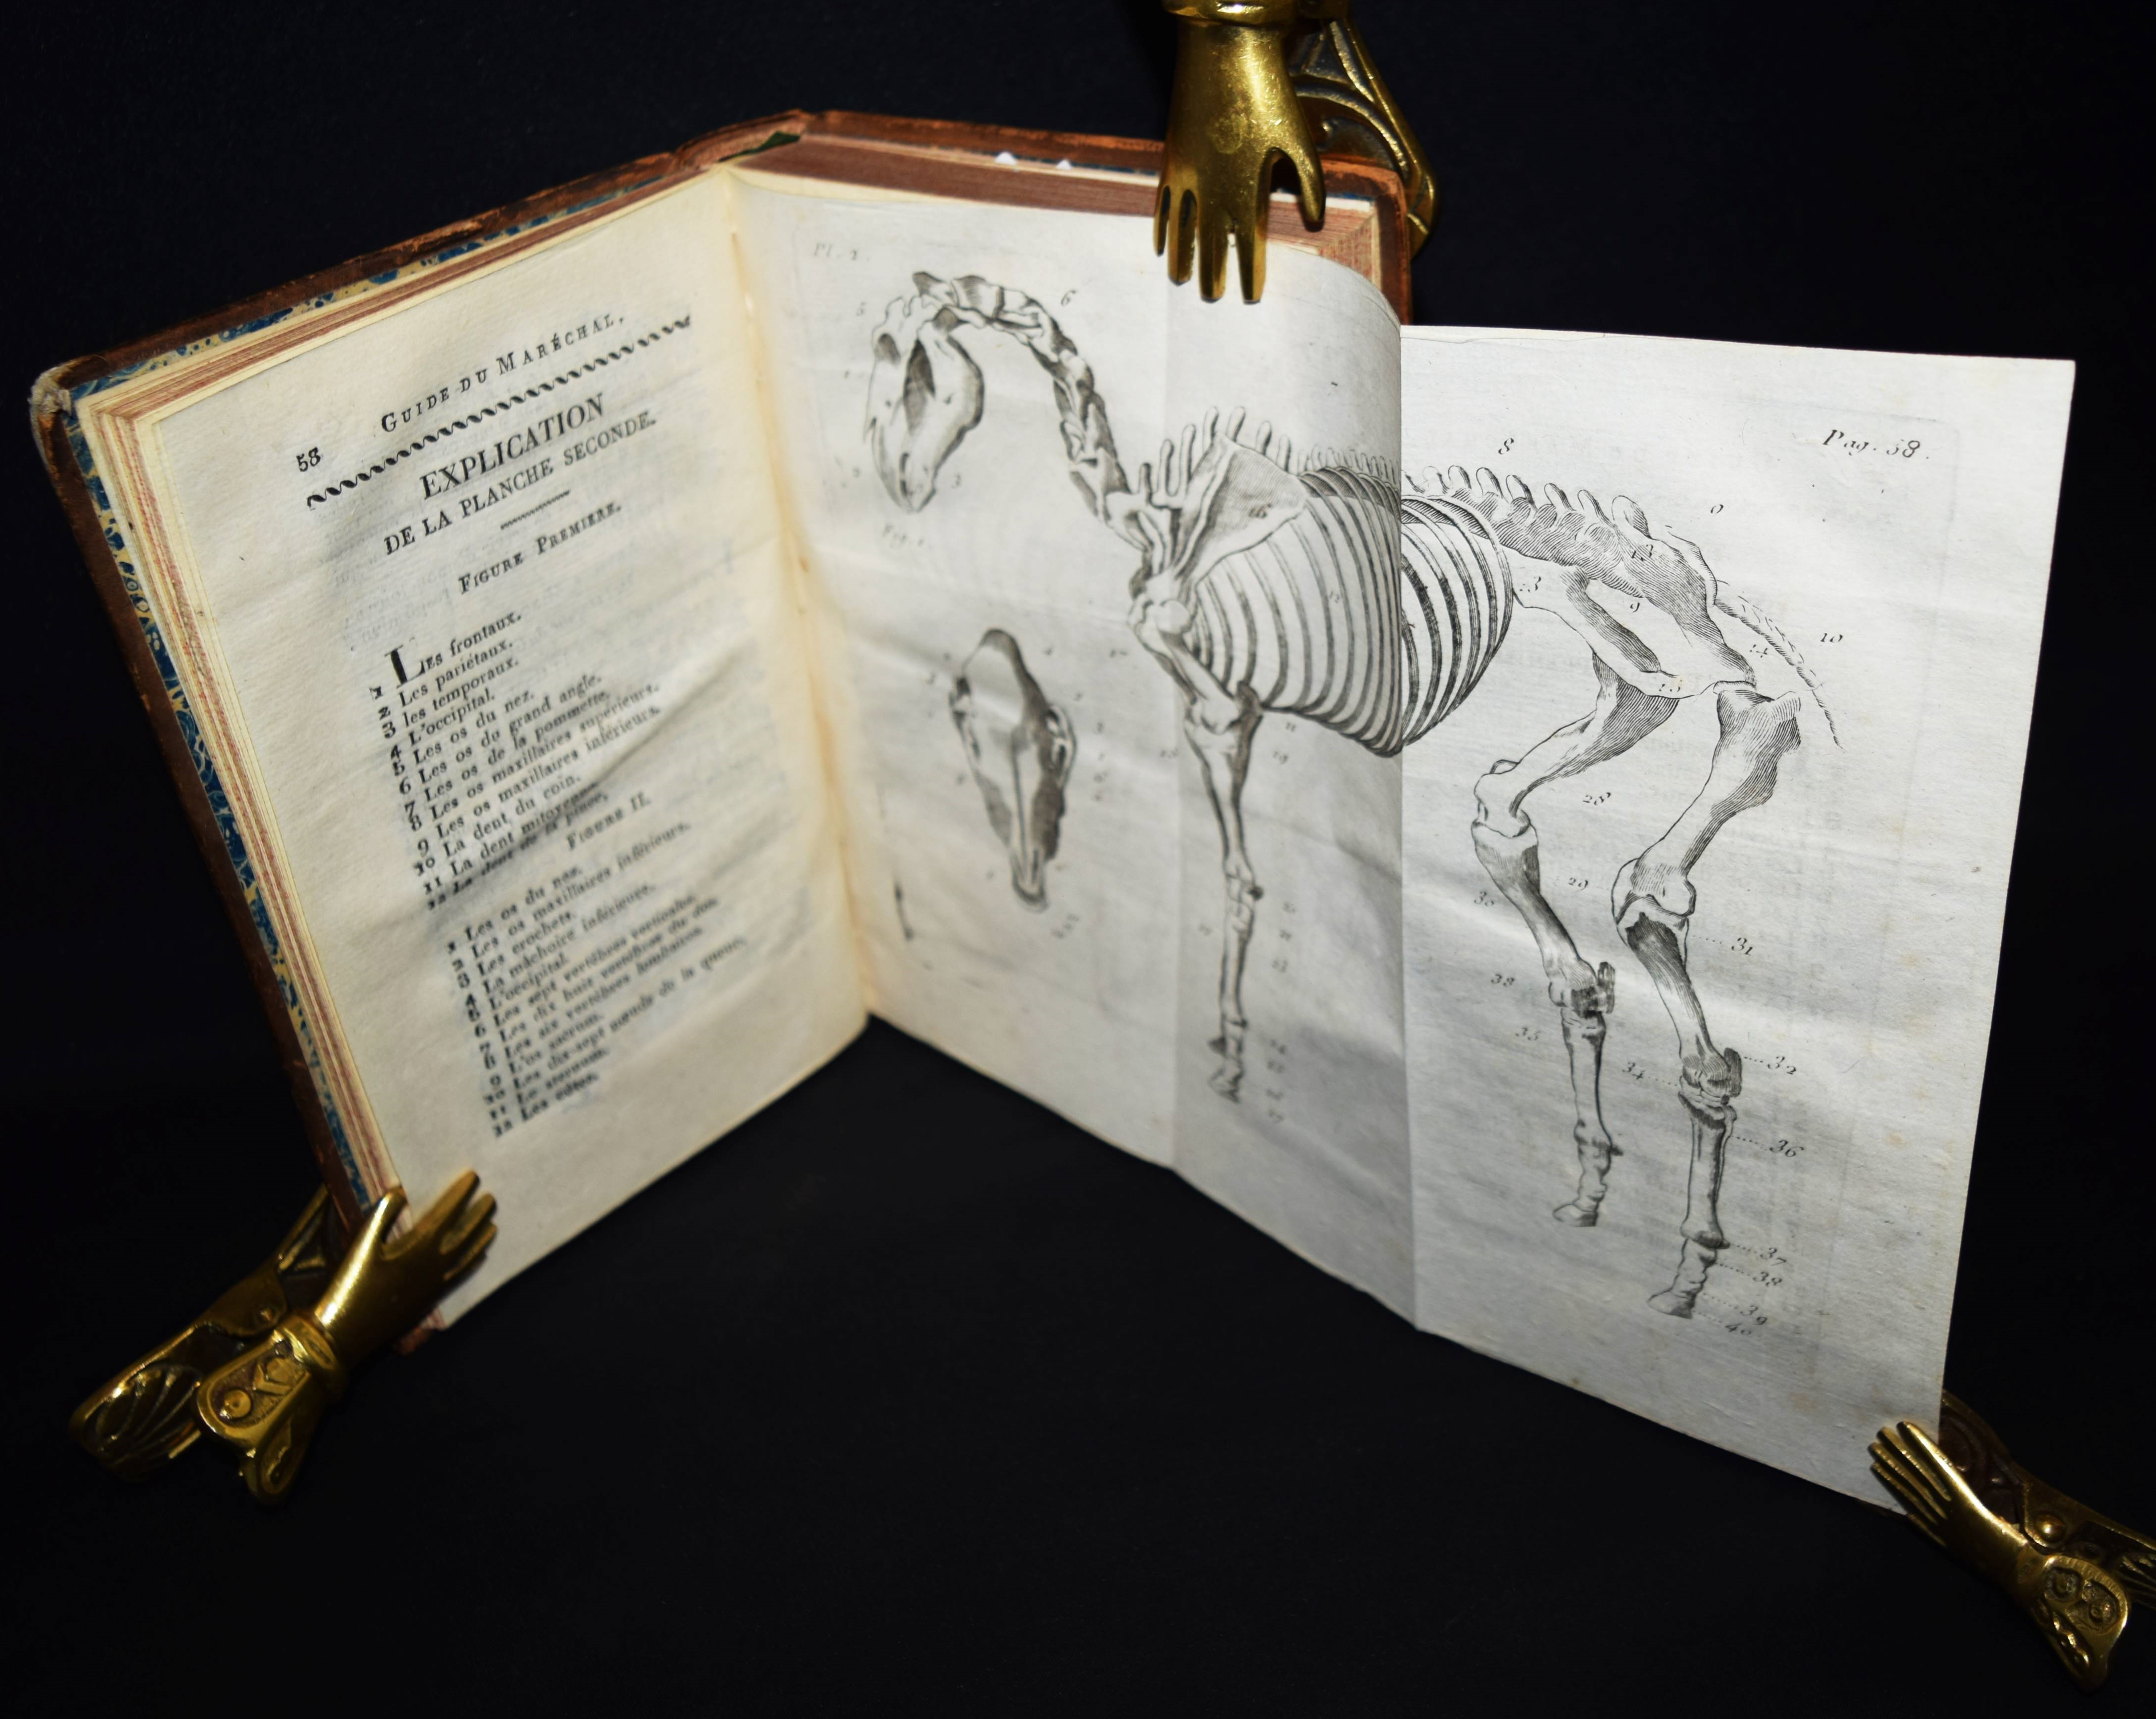 58 GUIDE DU MARÉCHAL,
EXPLICATION
DE LA PLANCHE SECONDE.
FIGURE PREMIERE.
1 LES frontaux.
2 Les pariétaux.
3 les temporaux.
4 L'occipital.
5 Les os du nez.
6 Les os du grand angle.
7 Les os de la pommette.
8 Les os maxillaires supérieurs.
9 Les os maxillaires inférieurs.
10 La dent du coin.
11 La dent mitoyenne.
12 La dent de la pince.
FIGURE II.
1 Les os du nez.
2 Les os maxillaires inférieurs.
3 Les crochets.
4 La mâchoire inférieure.
5 L'occipital.
6 Les sept vertèbres
7 Les dix huit vertèbres du dos.
8 Les six vertèbres lombaires.
9 L'os sacrum.
10 Les dix-sept nœuds de la queue.
11 Le sternum.
12 Les côtes.
Pl. 2.
Pag. 58.
5
6
3
8
9
10
13
14
28
29
30
31
32
34
35
36
37
38
39
40